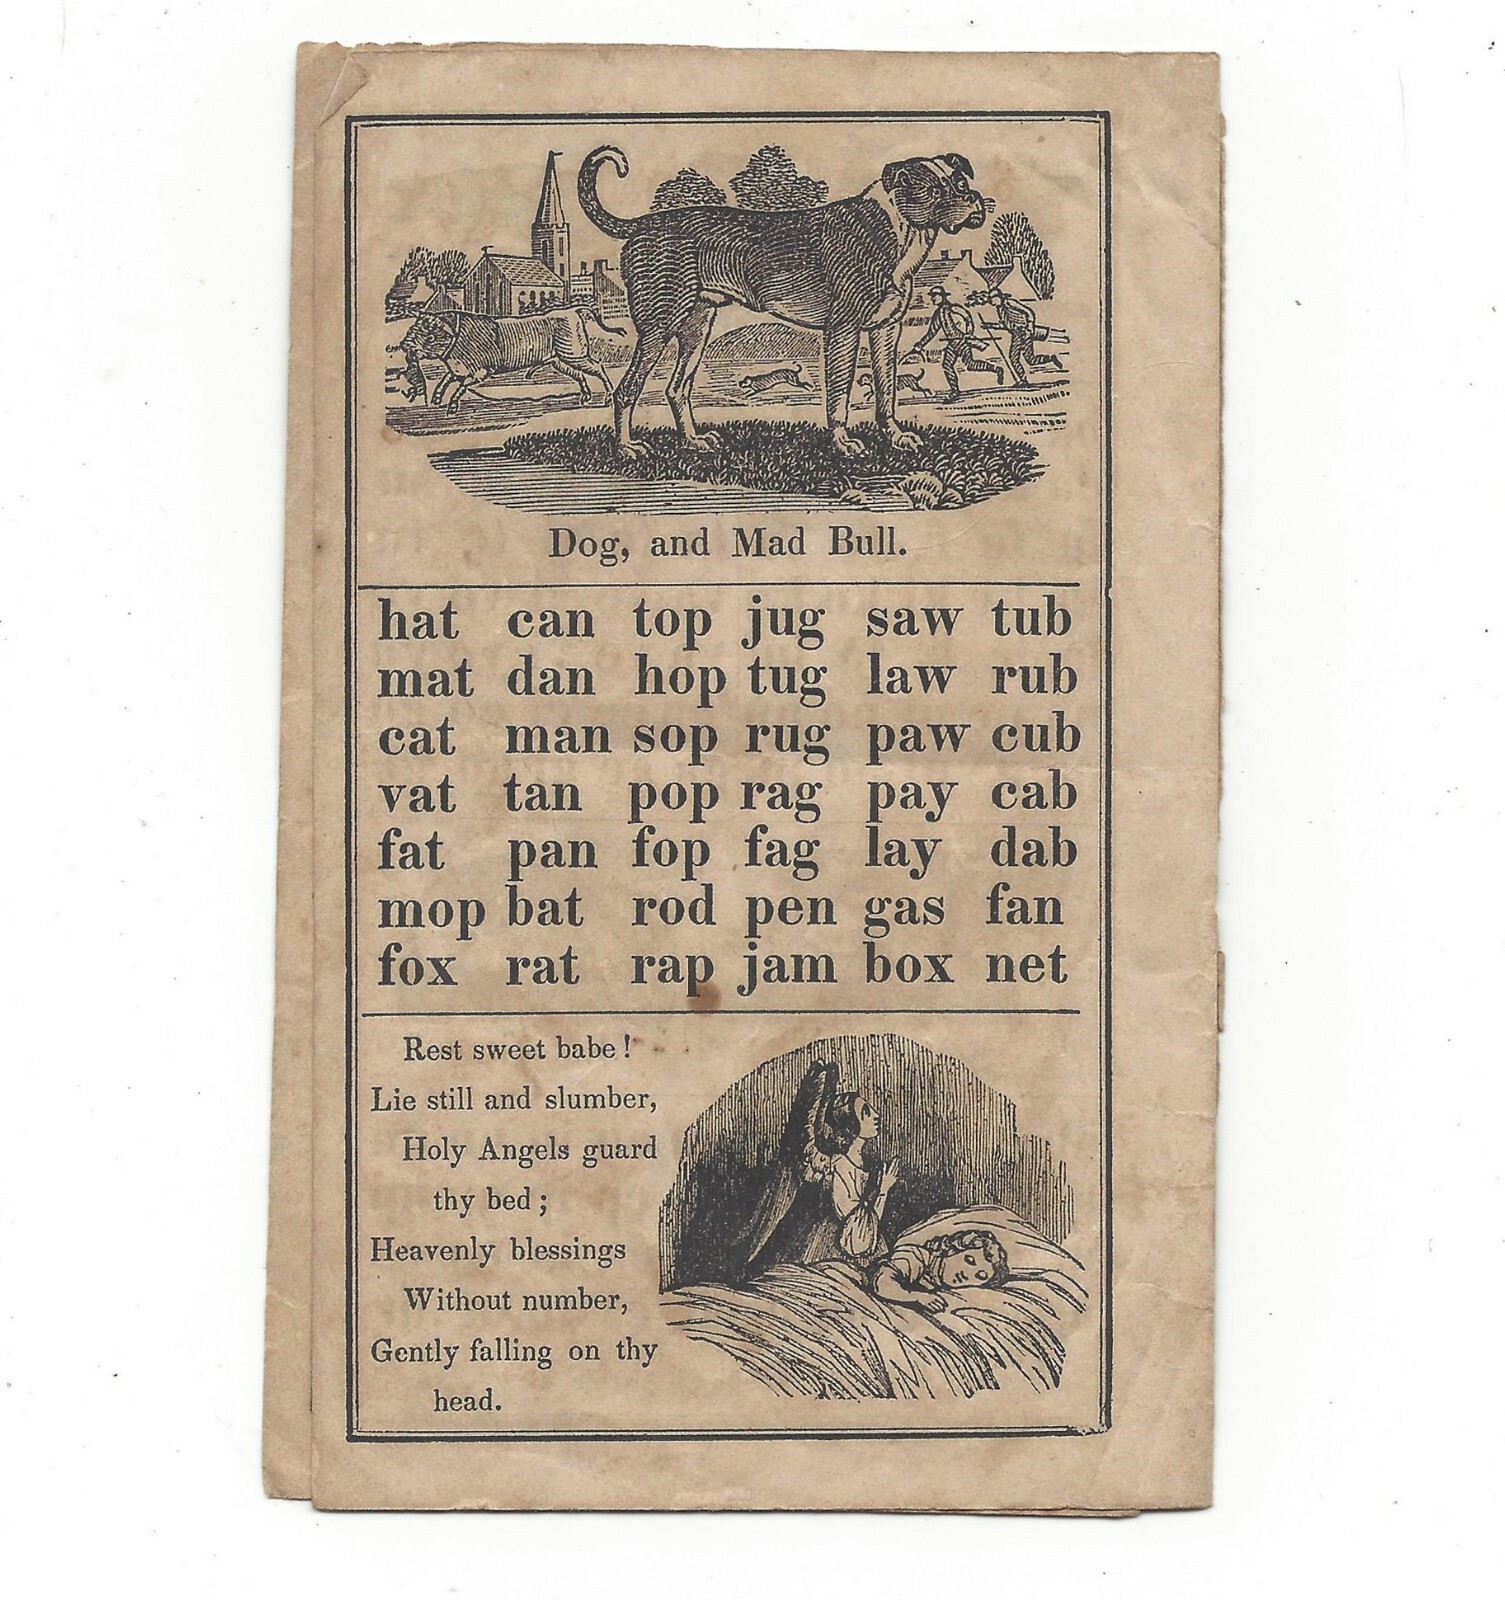 Dog, and Mad Bull.
hat can top jug saw tub
mat dan hop tug law rub
cat man sop rug paw cub
vat tan pop rag pay cab
fat pan fop fag lay dab
mop bat rod pen gas fan
fox rat rap jam box net
Rest sweet babe!
Lie still and slumber,
Holy Angels guard
thy bed;
Heavenly blessings
Without number,
Gently falling on thy
head.